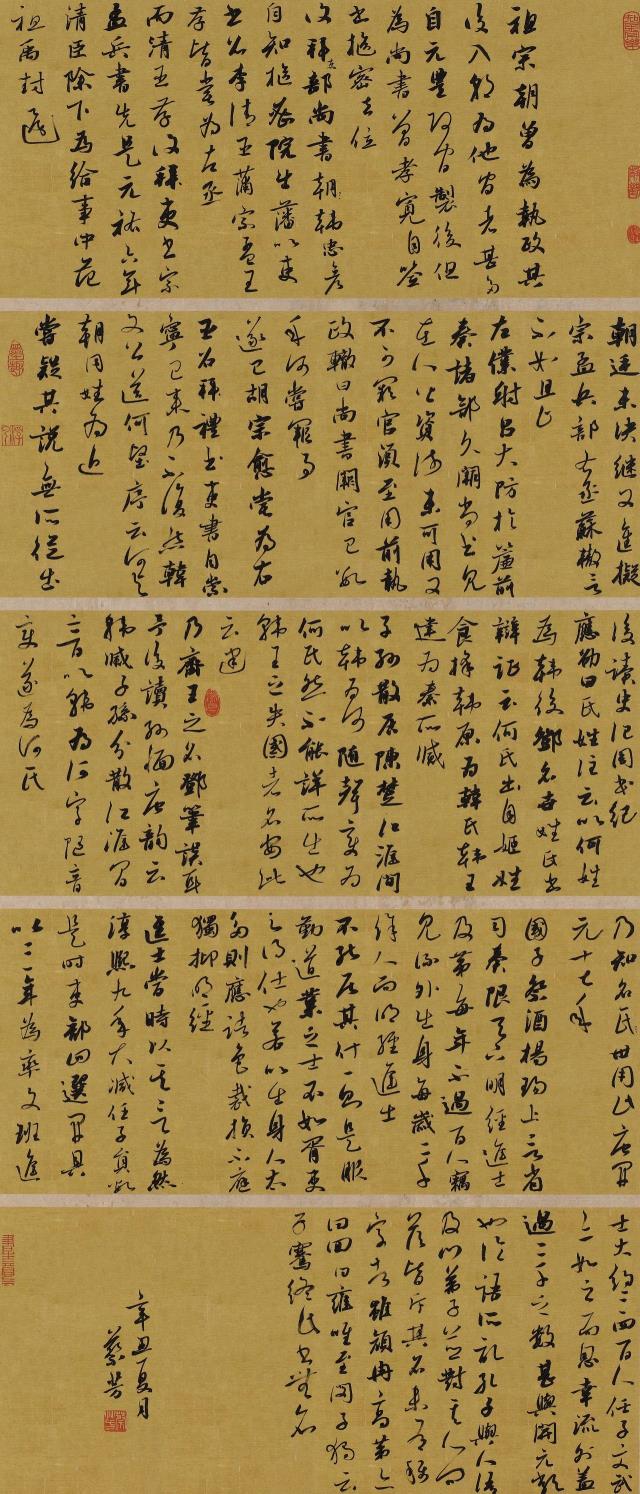 祖宗朝曾為執政其
後入朝為他官者甚多
自元豐改官製後但
為尚書曾孝寬自簽
書樞密去位
復拜吏部尚書朝韓忠彥
自知樞密院出藩以吏
書召李清臣蒲宗孟王
存皆嘗為左丞
而清臣存復拜吏書宗
孟兵書先是元祐六年
清臣除下為給事中范
祖禹封還
朝廷未決繼又進擬
宗孟兵部右丞蘇轍言
不如且止
左僕射呂大防於簾前
奏諸部久闕尚書見
在人皆資淺未可用又
不可闕官須至用前執
政轍曰尚書闕官已數
年何嘗闕事
遂已胡宗愈嘗為右
丞召拜禮書吏書自崇
寧已來乃不復然韓
文公送何堅序云何與
韓同姓為近
嘗疑其說無所從出
後讀史記周本紀
應劭曰氏姓注云以何姓
為韓後鄧名世姓氏書
辯証云何氏出自姬姓
食採韓原為韓氏韓王
建為秦所滅
子孫散居陳楚江淮間
以韓為何隨聲變為
何氏然不能詳所出也
韓王之失國者名安此
云建
乃齊王之名鄧筆誤耳
予後讀孫愐唐韻云
韓滅子孫分散江淮間
音以韓為何字隨音
變遂為何氏
乃知名氏世用此唐開
元十七年
國子祭酒楊瑒上言省
司奏限天下明經進士
及第每年不過百人竊
見流外出身每歲二千
餘人而明經進士
不能居其什一則是服
勤道業之士不如胥吏
之得仕也若以出身人太
多則應諸色裁損不應
獨抑明經
進士當時以其言為然
淳熙九年大減任子員數
是時吏部四選開具
以三年為率文班進
士大約三四百人任子文武
亦如之而恩倖流外蓋
過二千之數甚與開元類
也論語所記孔子與人語
及門弟子並對其人問
答皆斥其名未有稱
字者雖顏冉高弟亦
曰回曰雍唯至閔子獨云
子騫終此書無名
辛丑夏月
蔡芳